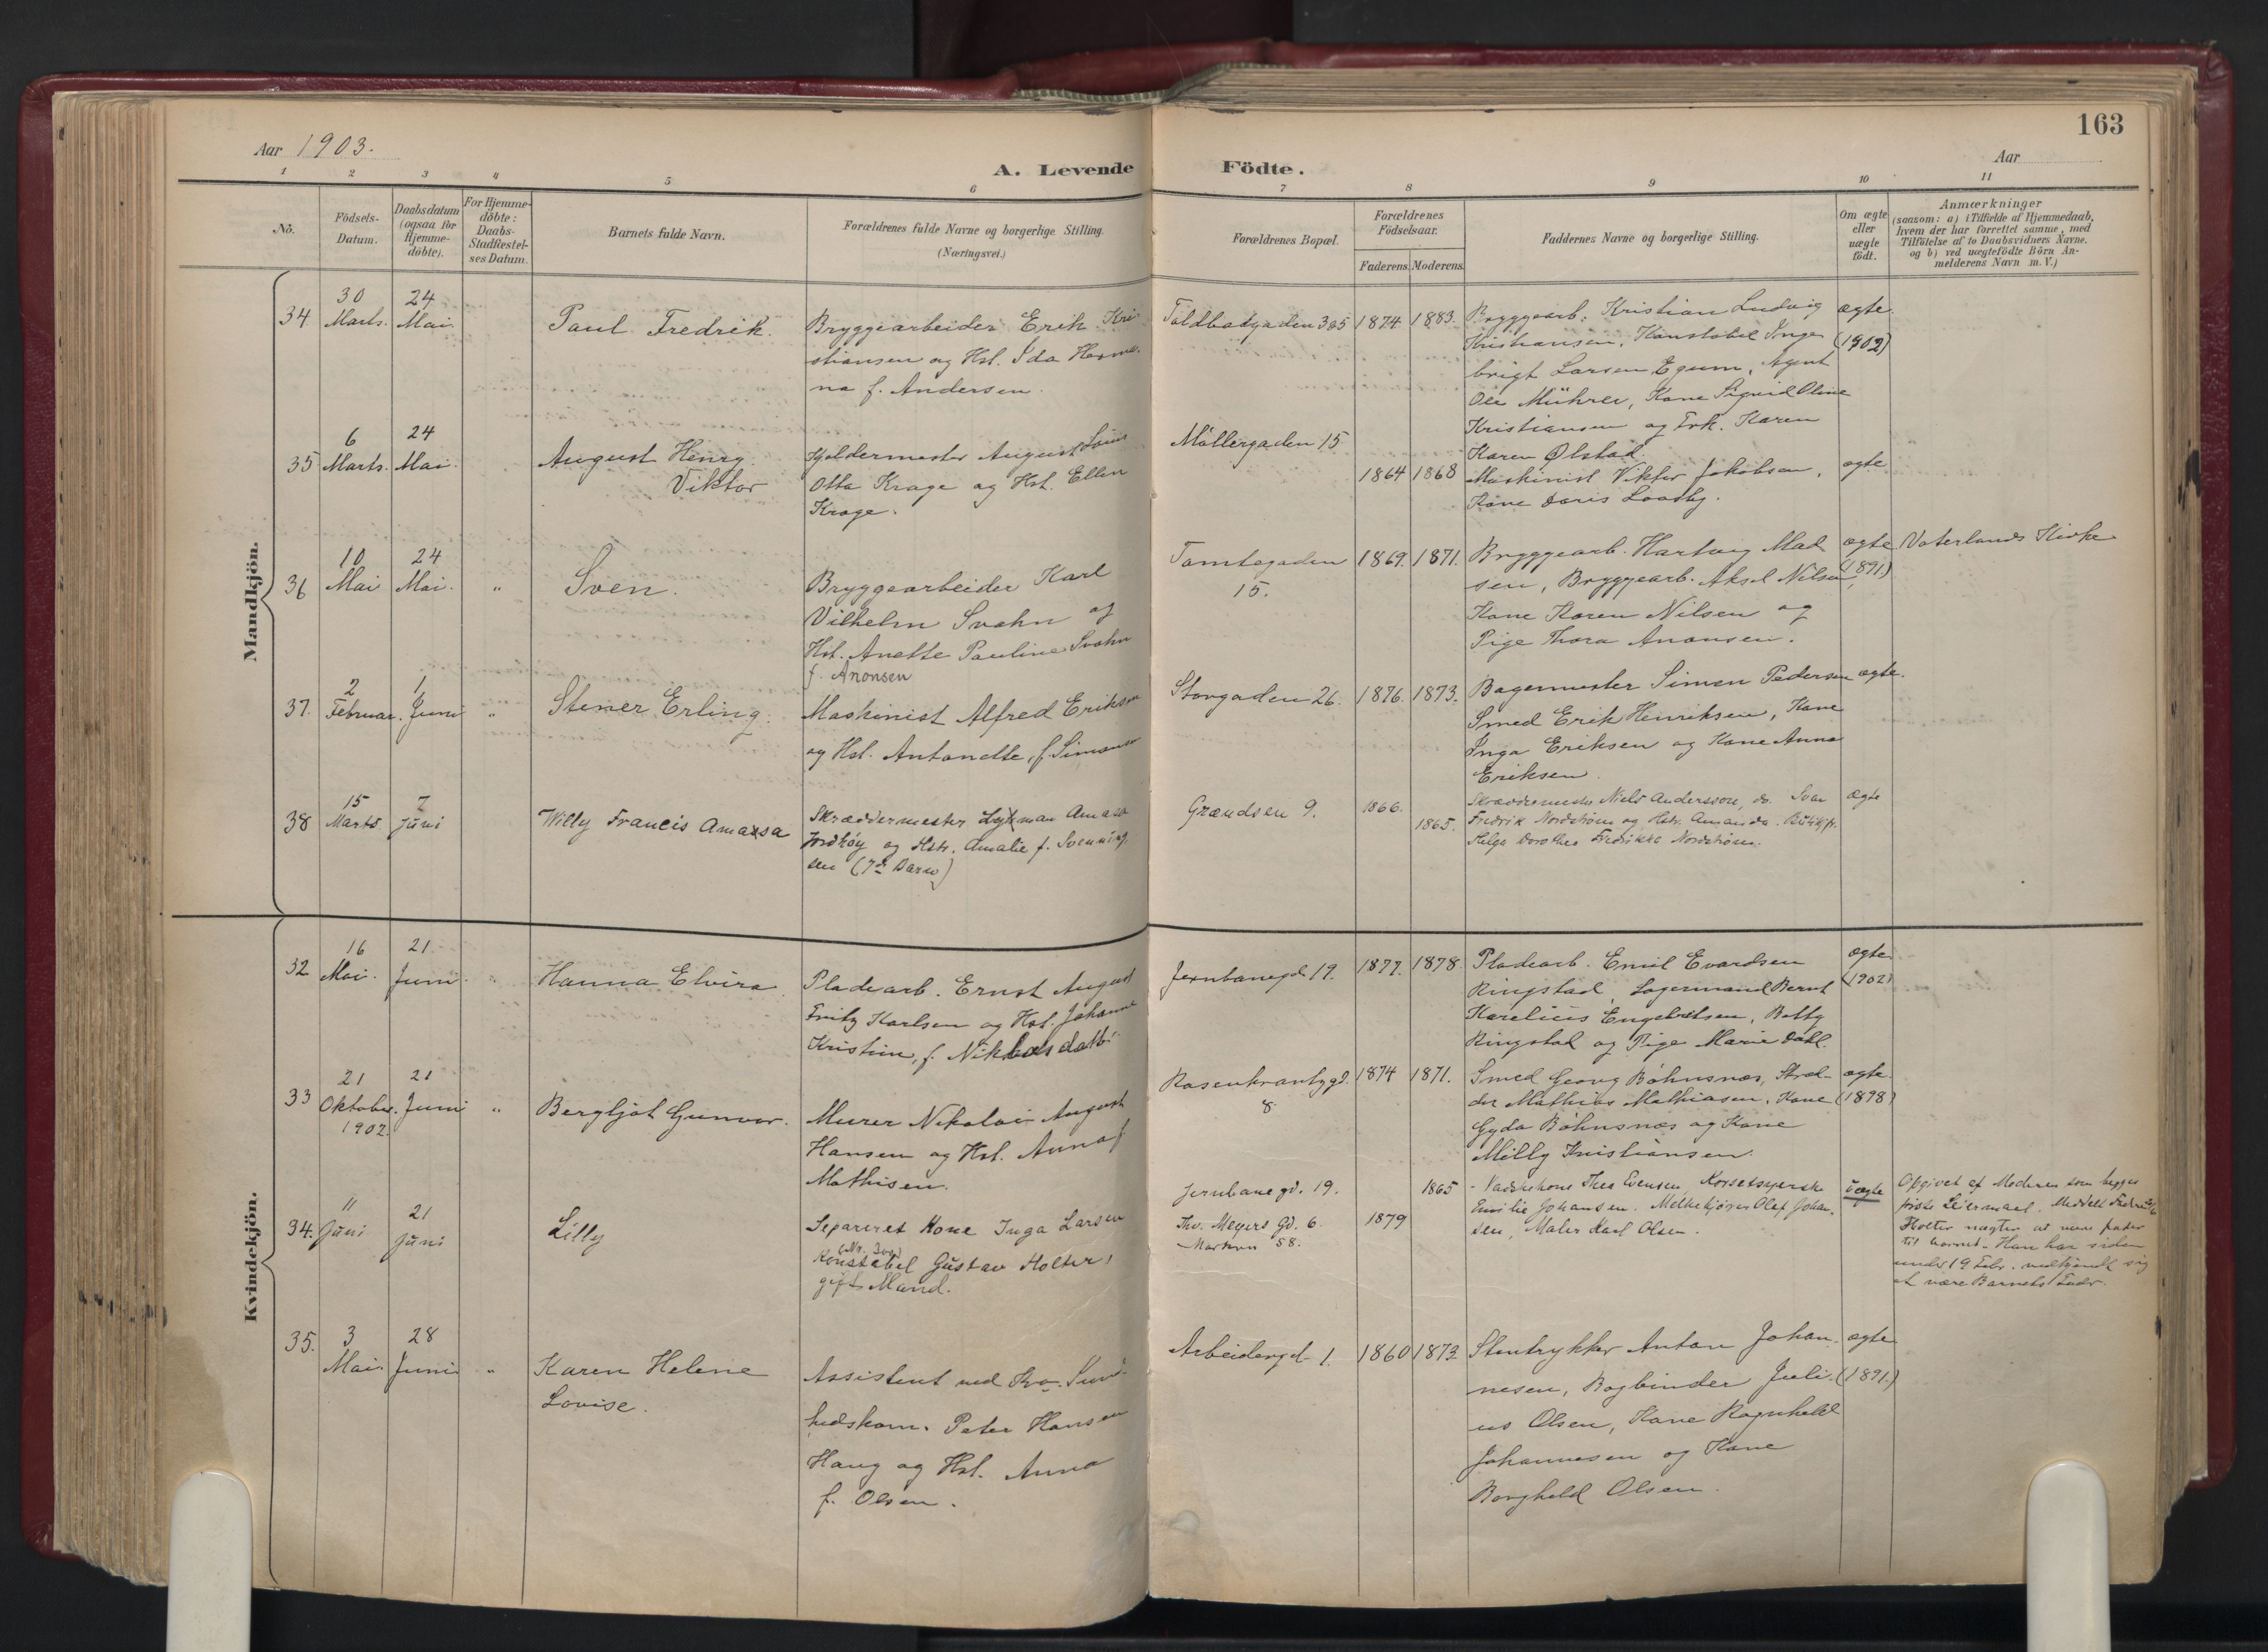 163
Aar 1903.
Aar
A. Levende Födte.
1 2 3 4 5 6 7 8 9 10 11
Nô.
Födsels-
Datum.
Daabsdatum
(ogsaa for
Hjemme-
döbte).
For Hjemme-
döbte:
Daabs-
Stadfæstel-
ses Datum.
Barnets fulde Navn.
Forældrenes fulde Navne og borgerlige Stilling.
(Næringsvei.)
Forældrenes Bopæl.
Forældrenes
Födselsaar.
Faderens. Moderens.
Faddernes Navne og borgerlige Stilling.
Om ægte
eller
uægte
födt.
Anmærkninger
(saasom: a) i Tilfælde af Hjemmedaab,
hvem der har forrettet samme, med
Tilföielse af to Daabsvidners Navne,
og b) ved uægtefödte Börn An-
melderens Navn m. V.)
Mandkjön.
34
30
Marts.
24
Mai
Paul Fredrik.
Bryggearbeider Erik Kri
stiansen og Hst. Ida
na f. Andersen
Toldbodgaden
1874 1883.
Bryggearb. Kristian Ludvig
Kristiansen, Konstabel Inge
brigt Larsen Egum, Agent
Ole Mührer, Kone Sigrid Oline
Kristiansen og Frk. Karen
Karen Ølstad.
ægte
(1902)
35
6
Marts.
24
Mai.
August Henry
Viktor
Kjeldermester August Louis
Otto Krage og Hst. Ellen
Krage.
Möllergaden 15
1864 1868
Maskinist Viktor Jakobsen,
Kone Doris Loosby.
ægte
36
10
Mai
24
Mai.
"
Sven.
Bryggearbeider Karl
Vilhelm Svahn og
Hst. Anette Pauline Svahn
f. Aronsen
Tomtegaden
15.
1869. 1871.
Bryggearb. Hartvig Mad
sen, Bryggearb. Aksel Nilsen,
Kone Karen Nilsen og
Pige Thora Aronsen.
ægte
(1891)
Vaterlands Kirke
37.
2
Februar.
1
Juni
"
Stener Erling.
Maskinist Alfred Eriksen
og Hst. Antonette, f. Simonsen
Storgaden 26.
1876. 1873.
Bagermester Simen Pedersen
Smed Erik Henriksen, Kone
Inga Eriksen og Kone Anna
Eriksen.
ægte.
38
15
Marts.
7
Juni
Willy Francis Amasa
Skræddermester Lyman Amasa
Jordhöy og Hstr. Amalie f. Svenning
sen (7de Barn)
Grændsen 9.
1866.
1865.
Skræddermester Niels Andersson, do. Svan
Fredrik Nordström og Hstr. Amanda. Butikjfr.
Helga Dorothea Fredrikke Nordström.
Ægte
Kvindekjön.
32
16
Mai.
21
Juni
"
Hanna Elvira
Pladearb. Ernst August
Fritz Karlsen og Hst. Johanne
Kristine, f. Niklasdatt.
Jernbanegd. 19.
1877. 1878.
Pladearb. Emil Evardsen
Ringstad, Lagermand Bernt
Karelius Engebretsen, Betty
Ringstad og Pige Marie Dahl.
ægte
(1902)
33
21
Oktober.
1902.
21
Juni
"
Bergljot Gunvor.
Murer Nikolai August
Hansen og Hst. Anna f.
Mathisen.
Rosenkrantzgd.
8
1874 1871.
Smed Georg Böhnsnæs, Skræd-
der Mathias Mathiasen, Kone
Gyda Böhnsnæs og Kone
Milly Kristiansen.
ægte
(1898)
34.
11
Juni
21
Juni
Lilly
Separeret Kone Inga Larsen
Konstabel Gustav Holter,
gift Mand.
Jernbanegd. 19.
Thv. Meyers Gd. 6.
Markvn 58.
1865
1879
Vaskekone Thea Evensen, Korsetsyerske
Emilie Johansen. Melkekjörer Olaf Johan-
sen, Maler Karl Olsen.
Uægte
Opgivet af Moderen som begges
förste Leiermaal. Meddelt Faderen
Holter nægter at være fader
til barnet. Han har siden
under 19 Febr. vedkjendt sig
at være Barnets Fader.
35.
3
Mai
28
Juni
"
Karen Helene
Lovise.
Assistent ved Kra. Sund-
hedskom. Peter Hansen
Haug og Hst. Anna
f. Olsen.
Arbeidergd. 1.
1860 1873
Stentrykker Anton Johan-
nesen, Bogbinder Juli-
us Olsen, Kone Ragnhild
Johannesen og Kone
Borghild Olsen.
ægte
(1891.)